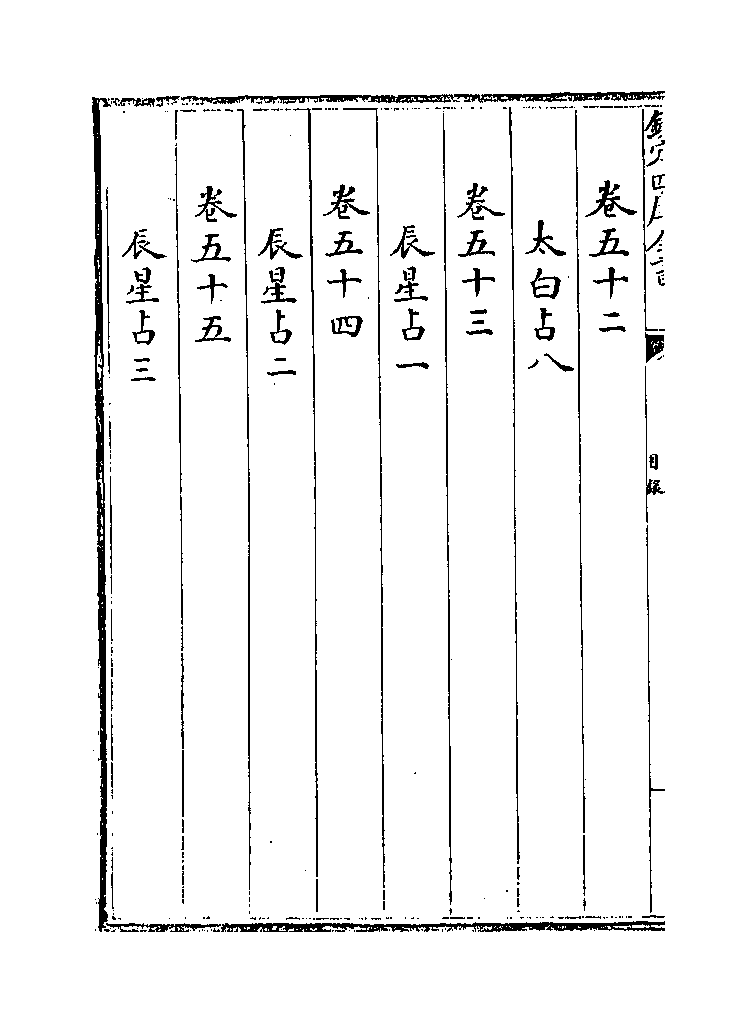 欽定四庫全書
目錄
卷五十二
太白占八
卷五十三
辰星占一
卷五十四
辰星占二
卷五十五
辰星占三